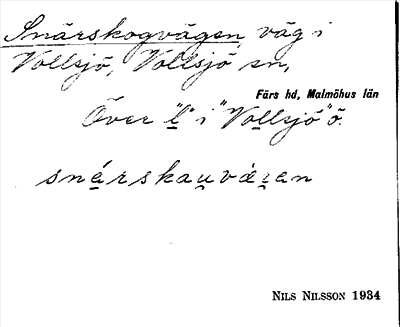 Snårskogvägen, väg i
Vollsjö, Vollsjö sn,
Färs hd, Malmöhus län
Över "l" i "Vollsjö" ö.
snårskauvägen
NILS NILSSON 1934